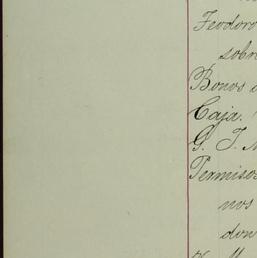 Feodoro
sobre
Bonos
Caja.
G. J.
Permisos
nos
don